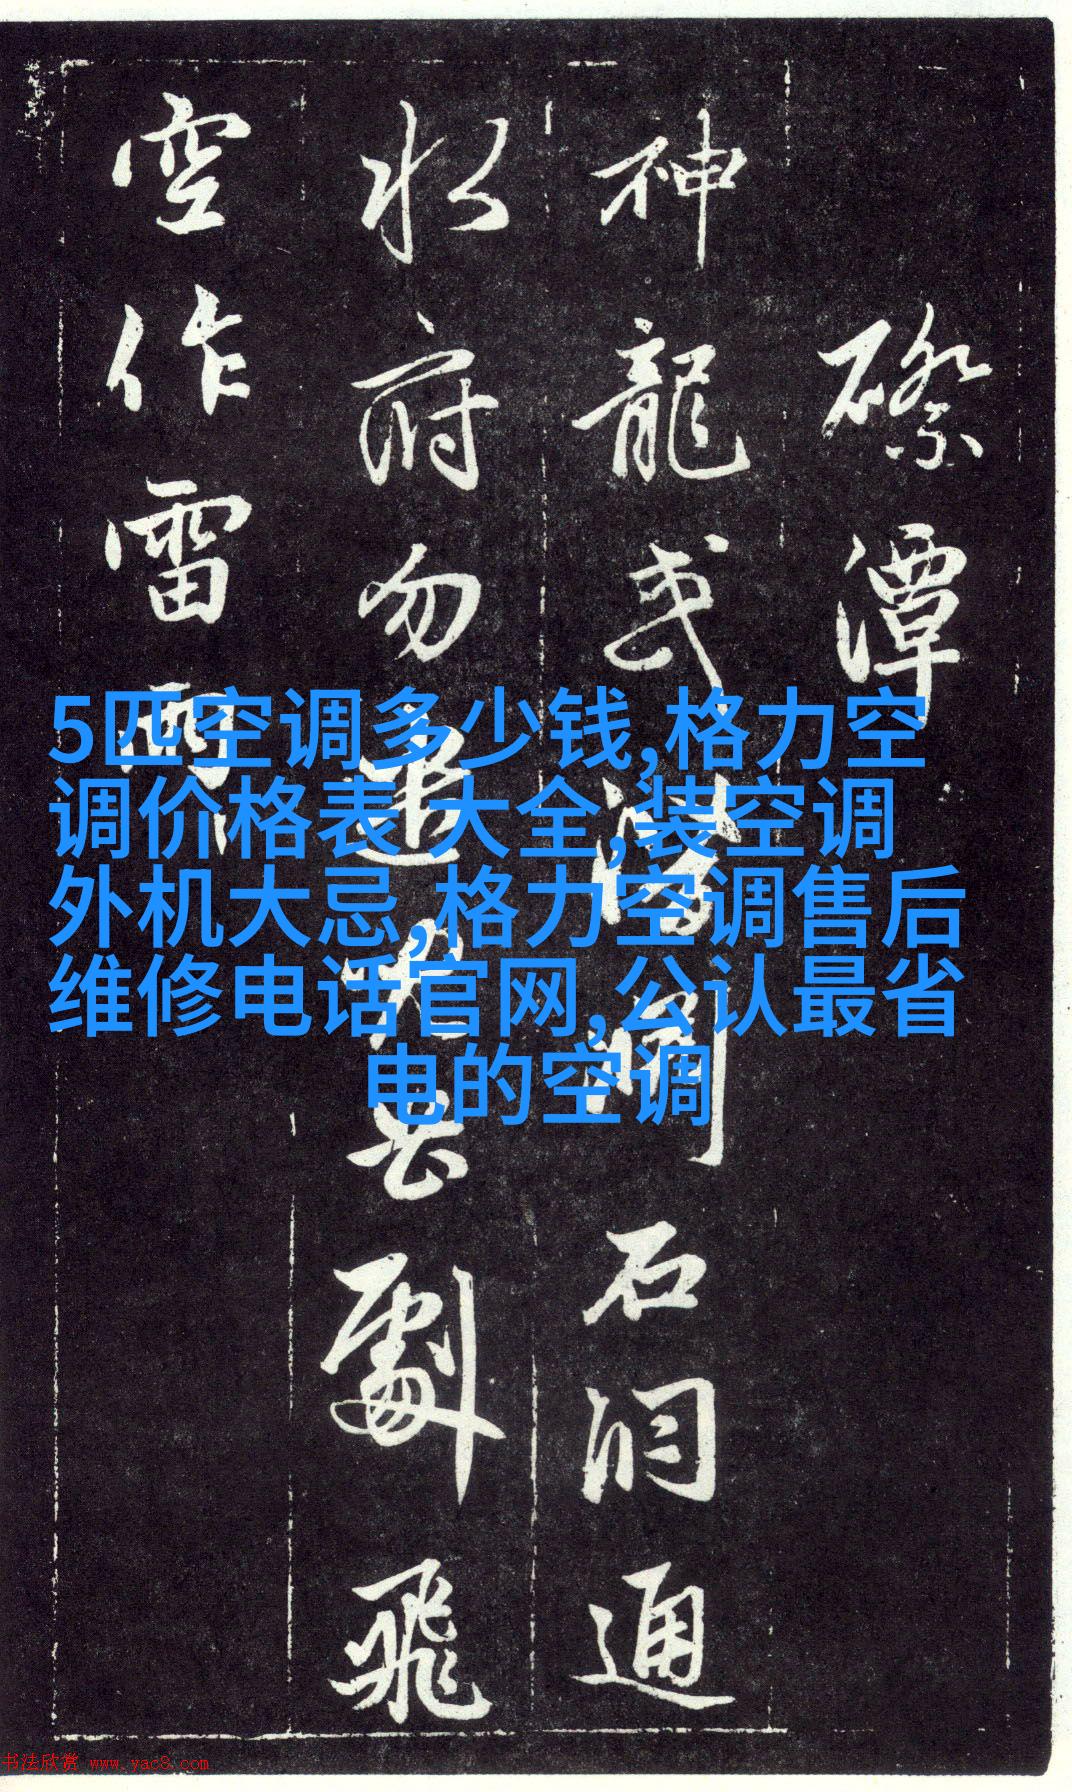 潭
神龍或石洞通
水府勿劇飛
空作雷雨
5匹空调多少钱,格力空
调价格表 大全,装空调
外机大忌,格力空调售后
维修电话官网,公认最省
电的空调
书法欣赏 www.yac8.com